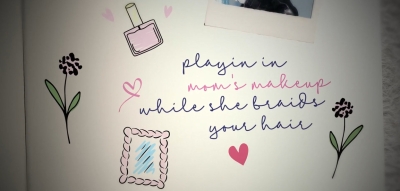 playin in
mom's makeup
while she braids
your hair